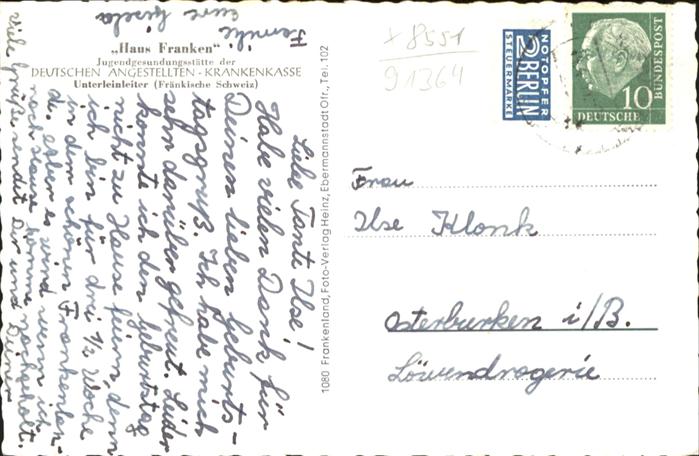 „Haus Franken"
Jugendgesundungsstätte der
DEUTSCHEN ANGESTELLTEN-KRANKENKASSE
Unterleinleiter (Fränkische Schweiz)
Liebe Tante Ilse!
Habe vielen Dank für
Deinen lieben Geburts-
tagsgruß. Ich habe mich
sehr darüber gefreut. Leider
konnte ich den Geburtstag
nicht zu Hause feiern, denn
ich bin für drei 1/2 Woche
in dem schönen Frankenlan-
de. Aber es wird wenn ich
nach Hause komme nachgeholt.
Viele Grüße sendet Dir und Deiner
Familie
eure Gisela
1080 Frankenland, Foto-Verlag Heinz, Ebermannstadt Ofr., Tel. 102
x 8551
91364
NOTOPFER
2 BERLIN
STEUERMARKE
DEUTSCHE
BUNDESPOST
10
Frau
Ilse Klonk
Osterburken i/B.
Löwendrogerie